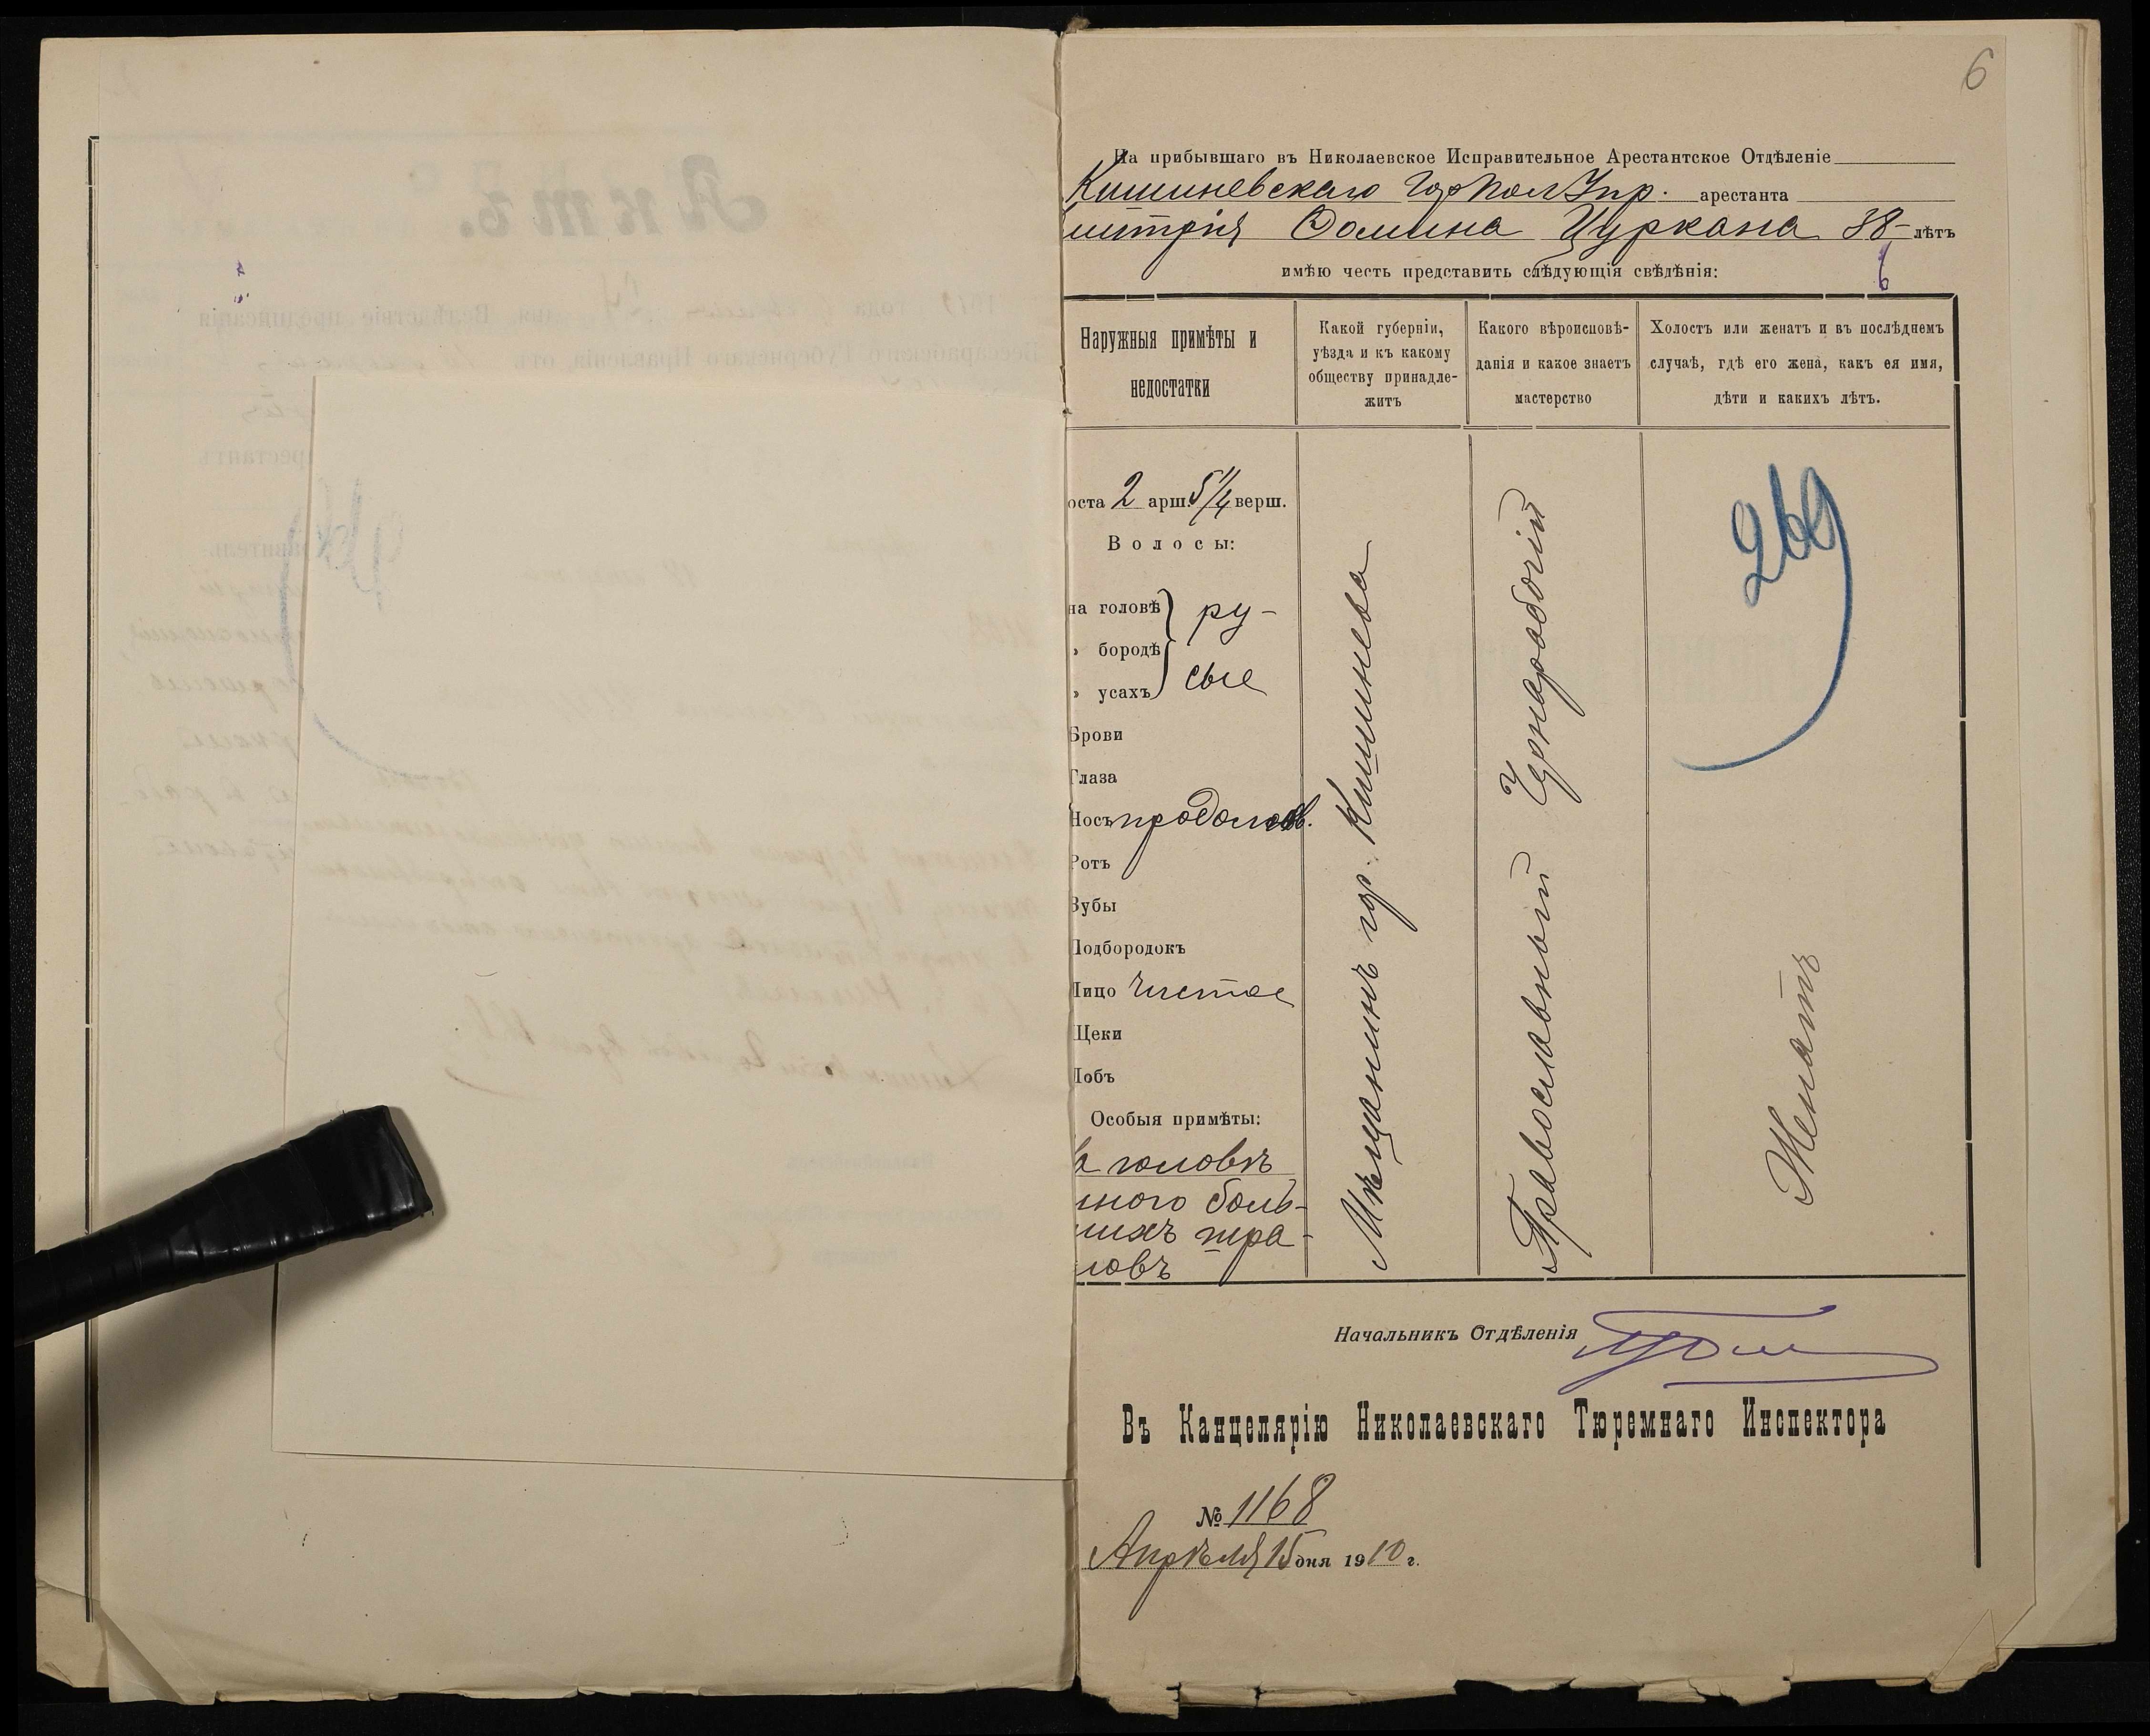 6
На прибывшаго въ Николаевское Исправительное Арестантское Отдѣленіе
Кишиневскаго Гор Пол Упр. арестанта
митрія Фомина Цуркана 38-лѣтъ
имѣю честь представить слѣдующія свѣдѣнія:
6
Наружныя примѣты и
недостатки
Какой губерніи,
уѣзда и къ какому
обществу принадле-
житъ
Какого вѣроисповѣ-
данія и какое знаетъ
мастерство
Холостъ или женатъ и въ послѣднемъ
случаѣ, гдѣ его жена, какъ ея имя,
дѣти и какихъ лѣтъ.
оста 2 арш. 5 1/4 верш.
Волосы:
на головѣ
„ бородѣ
„ усахъ
ру-
сые
Брови
Глаза
Носъ продолгов.
Ротъ
Зубы
Подбородокъ
Лицо чистое
Щеки
Лобъ
Особыя примѣты:
а головѣ
много боль-
шихъ шра-
мовъ
Мѣщанинъ гор. Кишинева
Православный Чернорабочій
269
Женатъ
Начальникъ Отдѣленія
Въ Канцелярію Николаевскаго Тюремнаго Инспектора
№ 1168
Апрѣля 15 дня 1910 г.